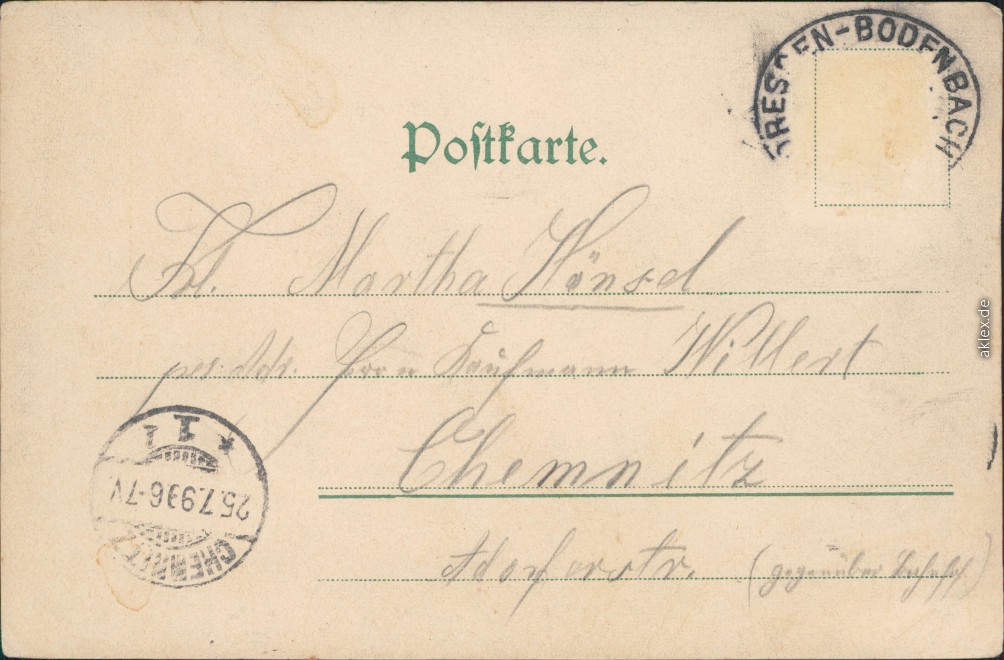 DRESDEN-BODENBACH
Postkarte.
Frl. Martha Hänsel
per. Adr. Herrn Kaufmann Willert
Chemnitz
Adorferstr. (gegenüber
CHEMNITZ
25.7.99 6-7V.
* 1 1
aklex.de